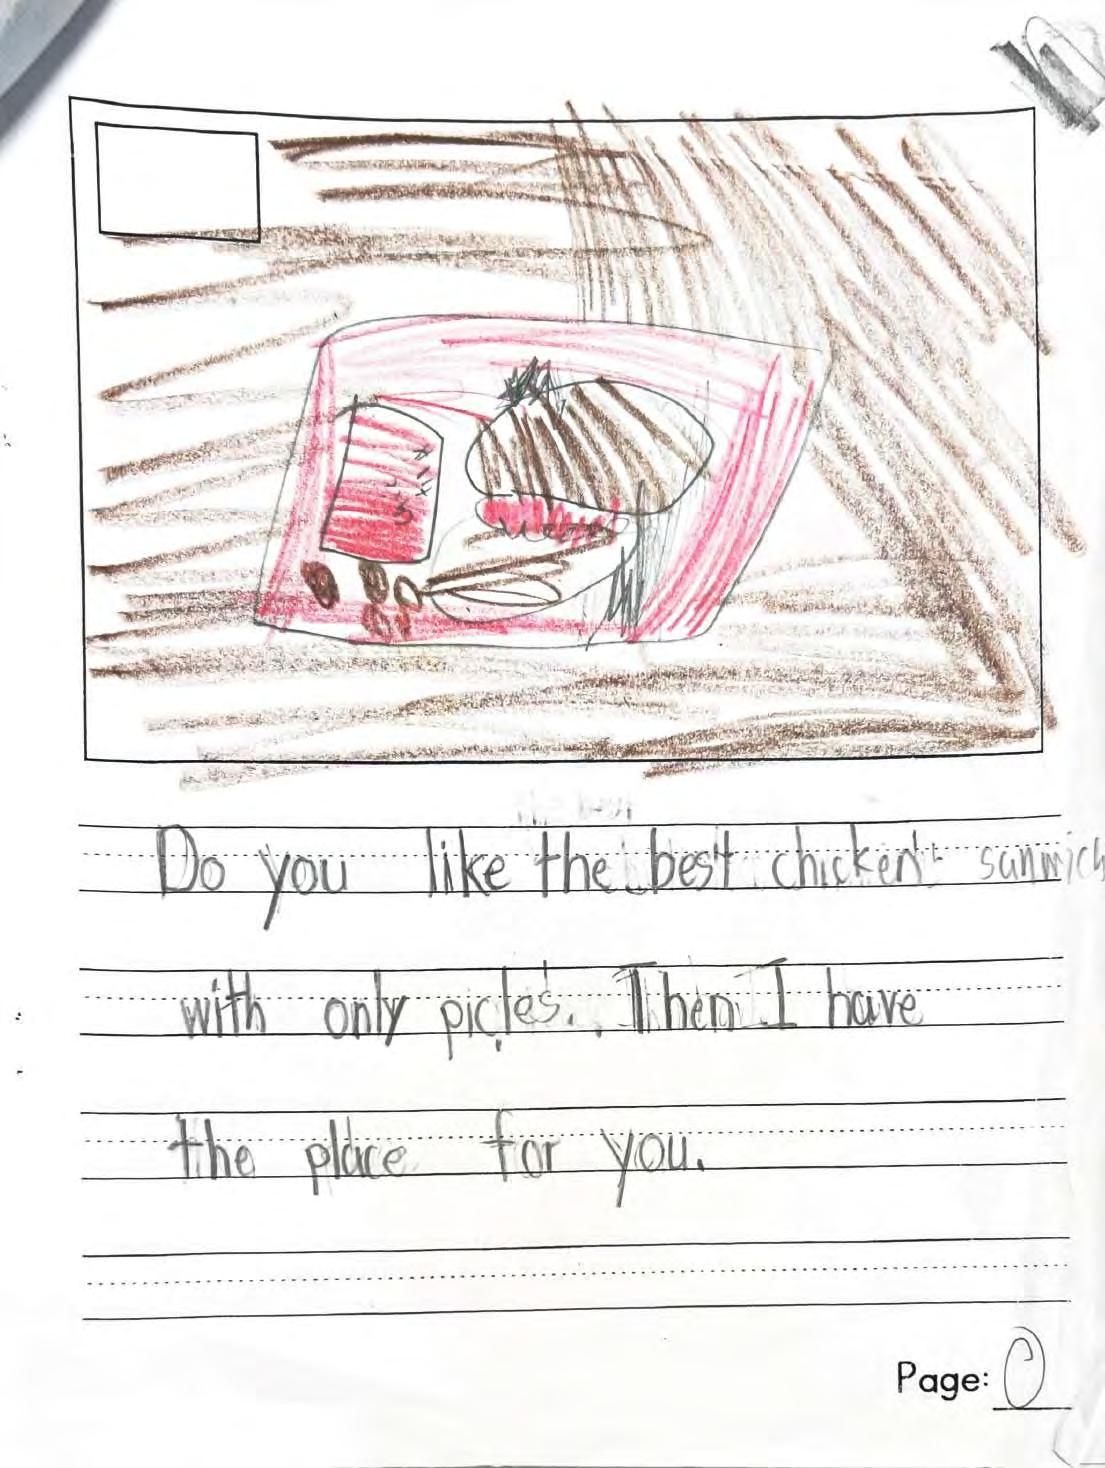 Do you like the best chicken sanwich
with only picles. Then I have
the place for you.
Page: 0